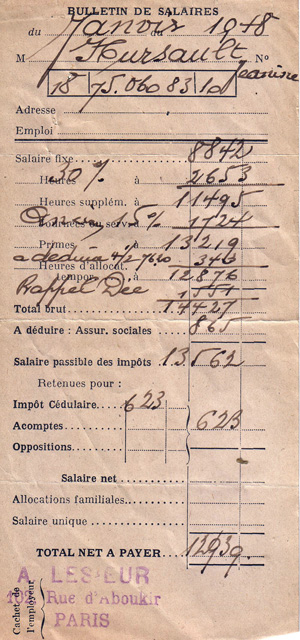 BULLETIN DE SALAIRES
du Janvier au 1948
M Hursault Jeanine No
18 75.060 83 101
Adresse
Emploi
Salaire fixe 8842
30% Heures à 2653
Heures supplém. à 11495
15% à 1724
Primes à 13219
a déduire 4/2 Heures d'allocat. à 343
Tempor. à 12876
Rappel Dec 1551
Total brut 14427
A déduire : Assur. sociales 865
Salaire passible des impôts 13562
Retenues pour :
Impôt Cédulaire 623
Acomptes 623
Oppositions
Salaire net
Allocations familiales
Salaire unique
TOTAL NET A PAYER 12939
Cachet de l'employeur
A. LESIEUR
103 Rue d'Aboukir
PARIS